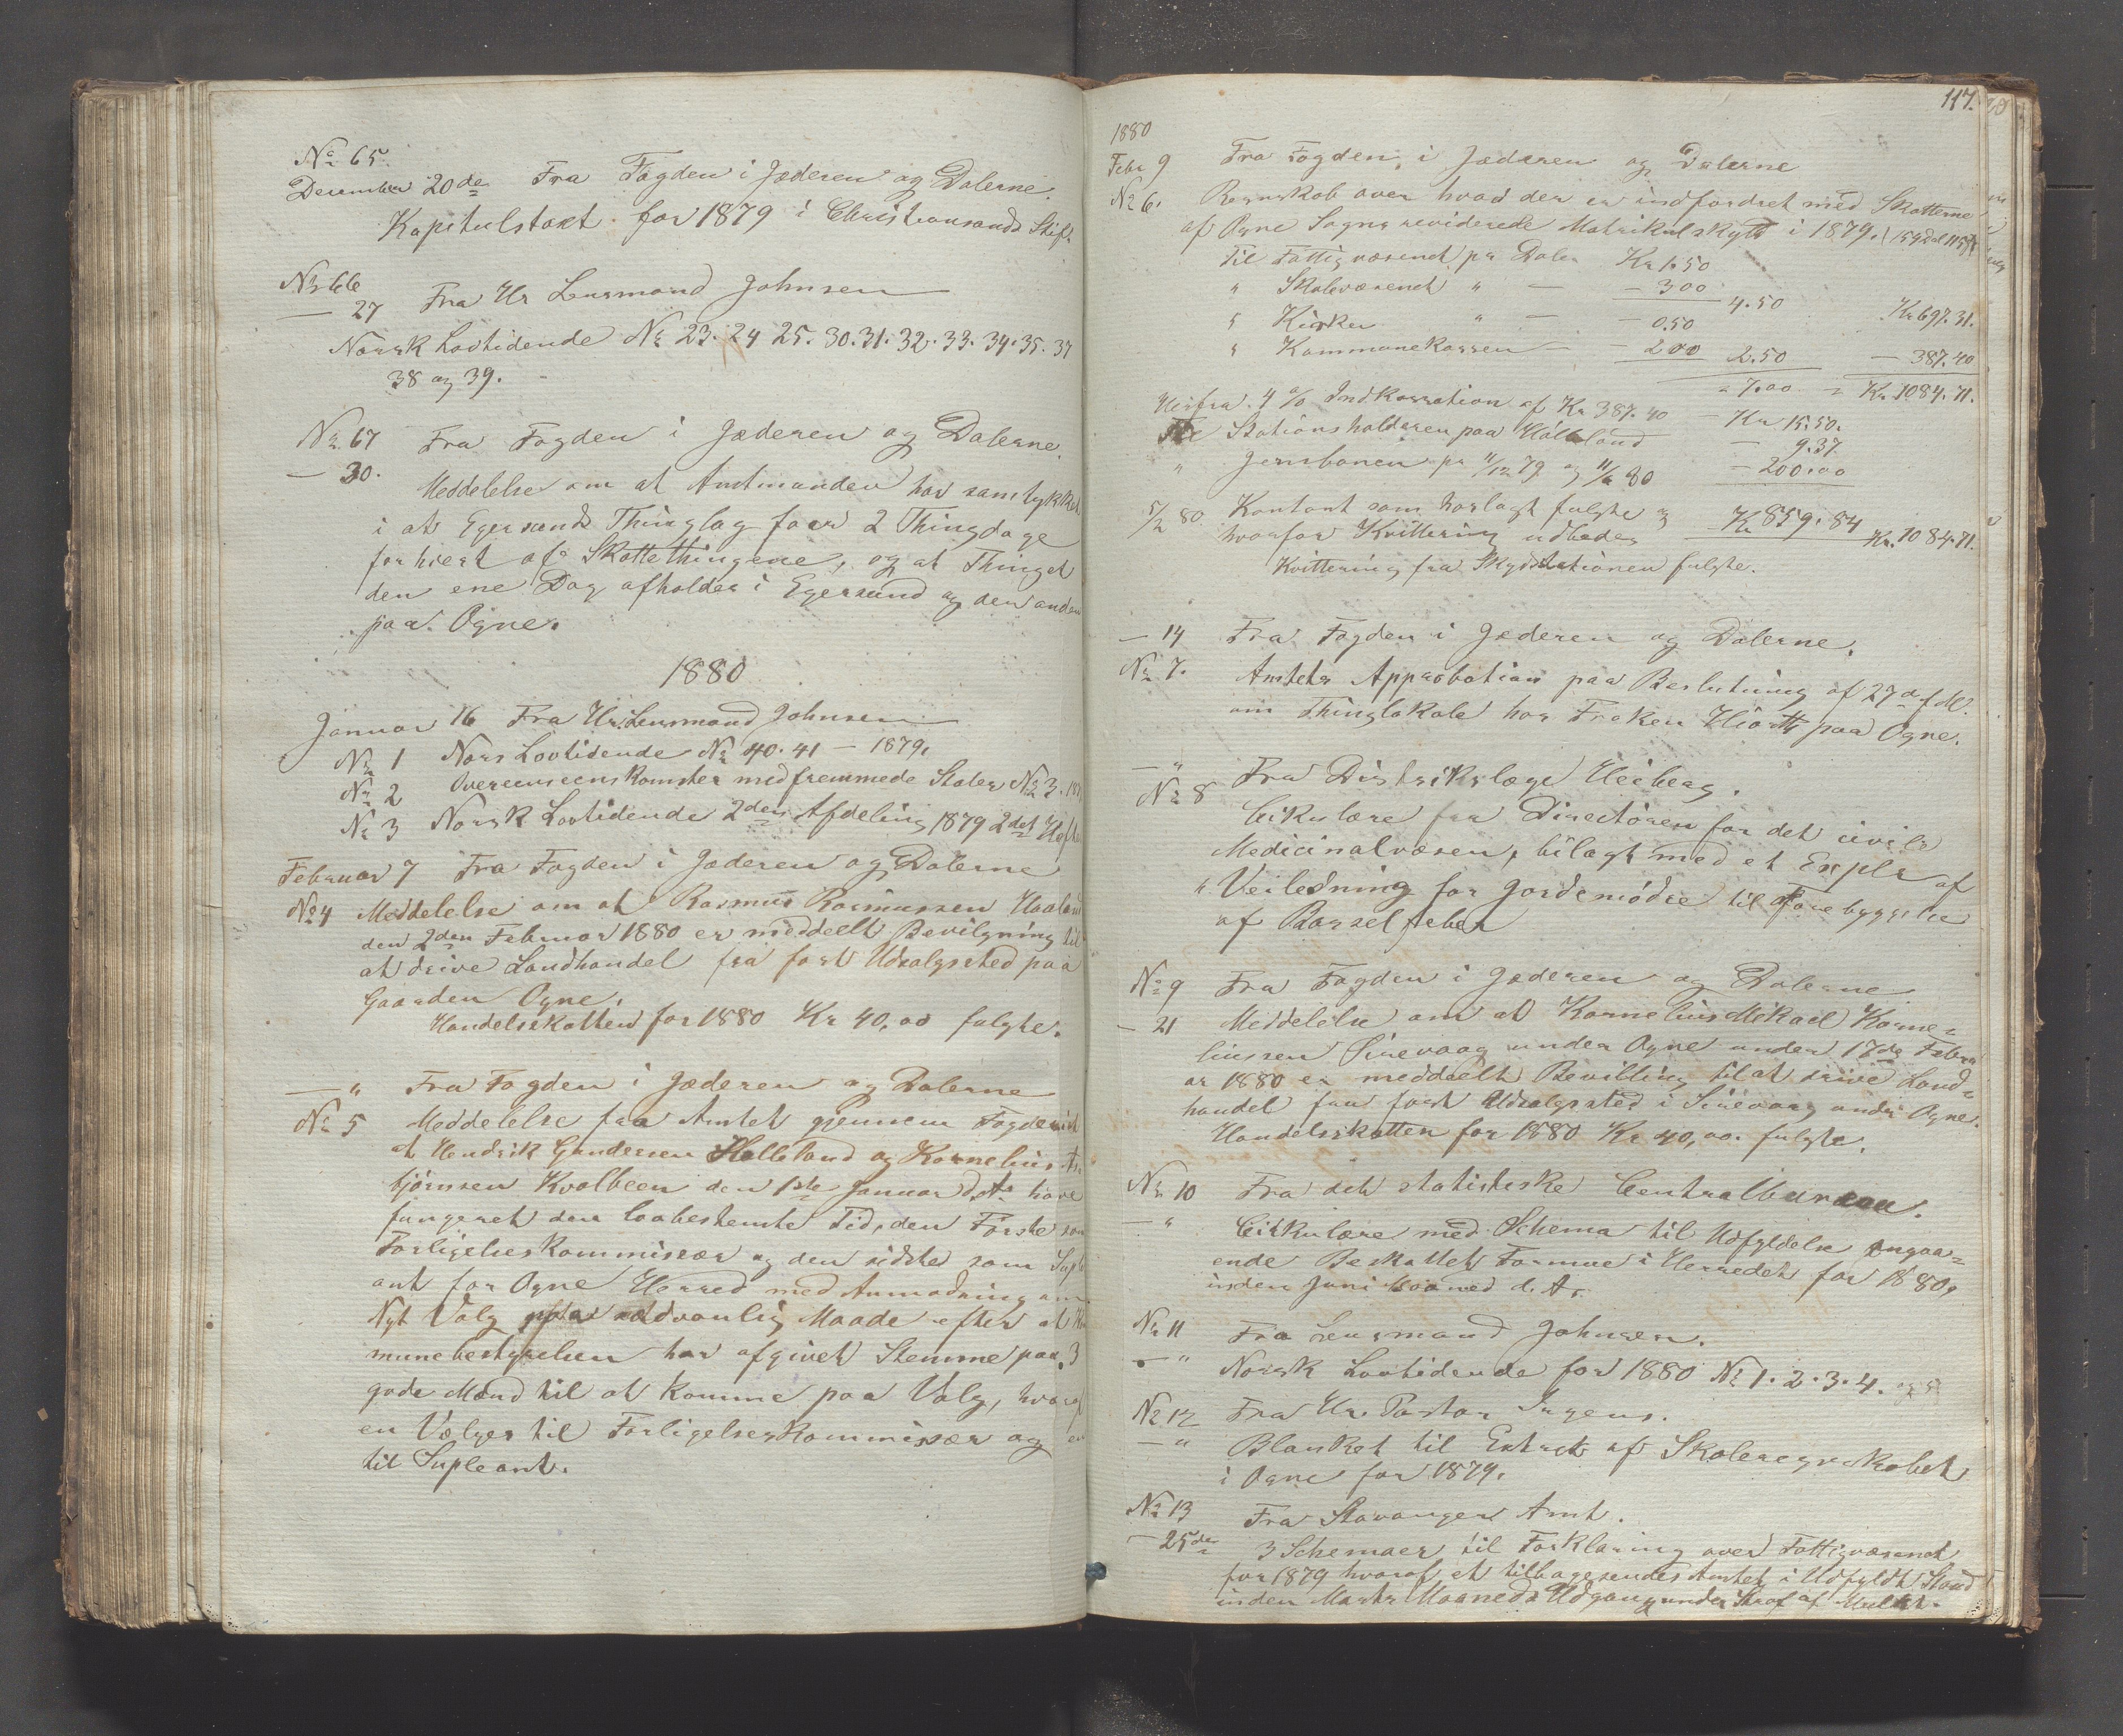 No 65.
December 20de Fra Fogden i Jæderen og Dalerne.
Kapitulstakt for 1879 i Christiansands Stift
No 66
— 27 Fra Hr Lensmand Johnsen
Norsk Lovtidende No 23. 24 25. 30. 31. 32. 33. 34. 35. 37
38 og 39.
No 67 Fra Fogden i Jæderen og Dalerne.
— 30.
Meddelelse om at Amtmanden har samtykket
i at Egersunds Thinglag faar 2 Thingdage
for hvert af Skattethingene, og at Thinget
den ene Dag afholdes i Egersund og den anden
paa Ogne.
1880
Januar 16 Fra Hr. Lensmand Johnsen
No 1 Nors Lovtidende No 40. 41 — 1879.
No 2 Overeenskomster med fremmede Stater No 3.
No 3 Norsk Lovtidende 2den Afdeling 1879 2det Hefte
Februar 7 Fra Fogden i Jæderen og Dalerne
No 4 Meddelelse om at Rasmus Rasmussen Haaland
den 2den Februar 1880 er meddelt Bevilgning til
at drive Landhandel fra fast Udsalgssted paa
Gaarden Ogne.
Handelsskatten for 1880 Kr 40,00 fulgte.
— " Fra Fogden i Jæderen og Dalerne
No 5 Meddelelse fra Amtet gjennem Fogderiet
at Hendrik Gundersen Helleland og Kornelius
bjørnsen Kvalbeen den 1ste Januar d. A. have
fungeret den lovbestemte Tid, den Første som
Forligelseskommissær og den sidste som Supl
ant for Ogne Herred med Anmodning om
Nyt Valg paa sædvanlig Maade efter at Kom
munebestyrelsen har afgivet Stemme paa 3
gode Mænd til at komme paa Valg, hvoraf
en Vælges til Forligelseskommissær og en
til Supleant.
117.
1880
Febr 9 Fra Fogden i Jæderen og Dalerne
No 6. Regnskab over hvad der er indfordret med Skatterne
af Ogne Sogns reviderede Matrikulskyld i 1879.
Til Fattigvæsenet pr Daler Kr 1.50
" Skolevæsenet " — — 3.00
4.50 Kr 697.31.
" Kirken " — — 0.50
" Kommunekassen — — 2.00 2.50 — 387.40
= 7.00 = Kr. 1084.71.
Herfra 4 % Indkassation af Kr 387.40 — Kr 15.50.
Til Stationsholderen paa Helleland — 9.37.
" Jernbanen pr 11/12 79 og — 200.00
5/2 80 Kontant som herlagt fulgte og Kr 859.84 Kr. 1084.71.
hvorfor Kvittering udbedes
Kvittering fra Skydsstationen fulgte.
— 14 Fra Fogden i Jæderen og Dalerne.
No 7. Amtets Approbation paa Beslutning af 27de f. M.
om Thinglokale hos Frøken Hiorth paa Ogne.
— "
No 8 Fra Distrikslæge Heiberg.
Cirkulære fra Directøren for det civile
Medicinalvæsen, bilagt med et Explr af
" Veiledning for Jordemødre til Forebyggelse
af Barselfeber
No 9 Fra Fogden i Jæderen og Dalerne
— 21 Meddelelse om at Kornelius Mikael Korne=
liussen Sirevaag under Ogne under 17de Febru
ar 1880 er meddelt Bevilling til at drive Land=
handel fra fast Udsalgssted i Sirevaag under Ogne.
Handelsskatten for 1880 Kr 40,00. fulgte.
No 10 Fra det statistiske Centralbureau.
— " Cirkulære med Schema til Udfyldelse angaa=
ende Beskattet Formue i Herredet for 1880,
inden Juni Maaned d. Ar.
No 11 Fra Lensmand Johnsen.
— " Norsk Lovtidende for 1880 No 1. 2. 3. 4. og 5
No 12 Fra Hr. Pastor Jrgens.
— " Blanket til Extract af Skoleregnskabet
i Ogne for 1879.
No 13 Fra Stavanger Amt.
— 25de
3 Schemaer til Forklaring over Fattigvæsenet
for 1879 hvoraf et tilbagesendes Amtet i Udfyldt Stand
inden Marts Maaneds Udgang under Straf af Mulkt.